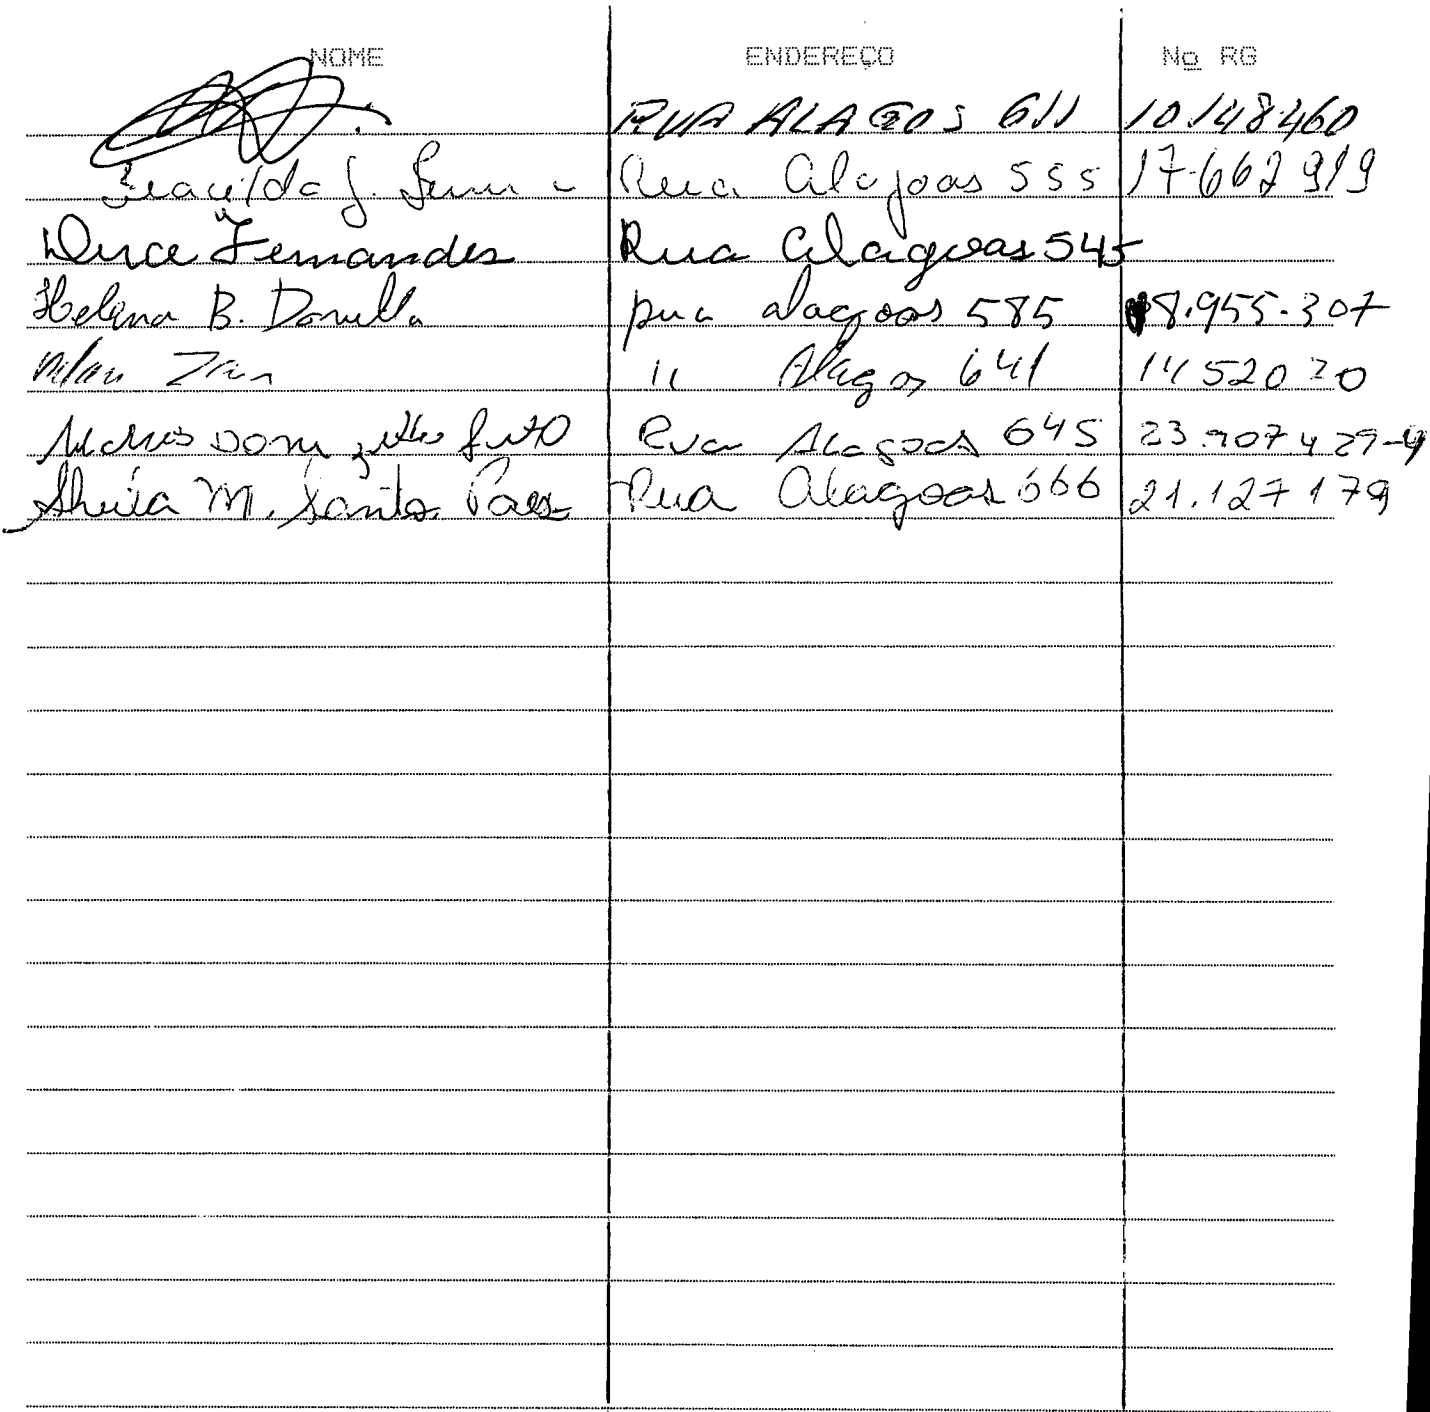 NOME ENDEREÇO Nº RG
RUA ALAGOOS 611 10.148.460
Rua Alagoas 555 17.662 919
Dirce Fernandes Rua Alagoas 545
Helena B. Rua Alagoas 585 8.955.307
11 Alagoas 641 14 520 20
Rua Alagoas 645 23.907429-4
Sheila M. Santos Paes Rua Alagoas 666 21.127 179